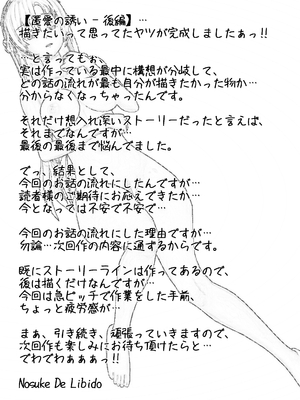 【蓮愛の誘い － 後編】…
描きだいって思ってたヤツが完成しましたぁっ!!
…と言ってもぉ、
実は作っている最中に構想が分岐して、
どの話の流れが最も自分が描きたかった物か…
分からなくなっちゃったんです。
それだけ想入れ深いストーリーだったと言えば、
それまでなんですが…
最後の最後まで悩んでました。
でっ、結果として、
今回のお話の流れにしたんですが…
読者様のご期待にお応えできたか…
今となっては不安で不安で…
今回のお話の流れにした理由ですが…
勿論…次回作の内容に通ずるからです。
既にストーリーラインは作ってあるので、
後は描くだけなんですが…
今回は急ピッチで作業をした手前、
ちょっと疲労感が…
まぁ、引き続き、頑張っていきますので、
次回作も楽しみにお待ち頂けたらと…
でわでわぁぁぁっ!!
Nosuke De Libido